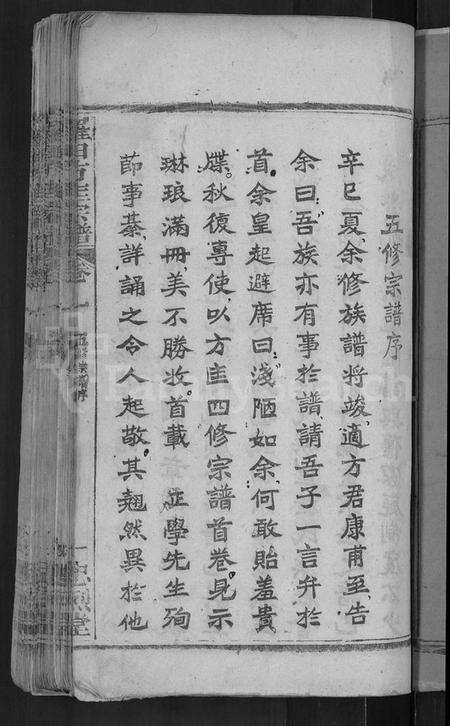 五修宗譜序
辛巳夏余修族譜將竣適方君康甫至告
余曰吾族亦有事於譜請吾子一言弁於
首余皇起避席曰淺陋如余何敢貽羞貴
牒秋復專使以方庄四修宗譜首卷見示
琳琅滿冊美不勝收首載 正學先生殉
節事綦詳誦之令人起敬其翹然異於他
宗譜 卷一